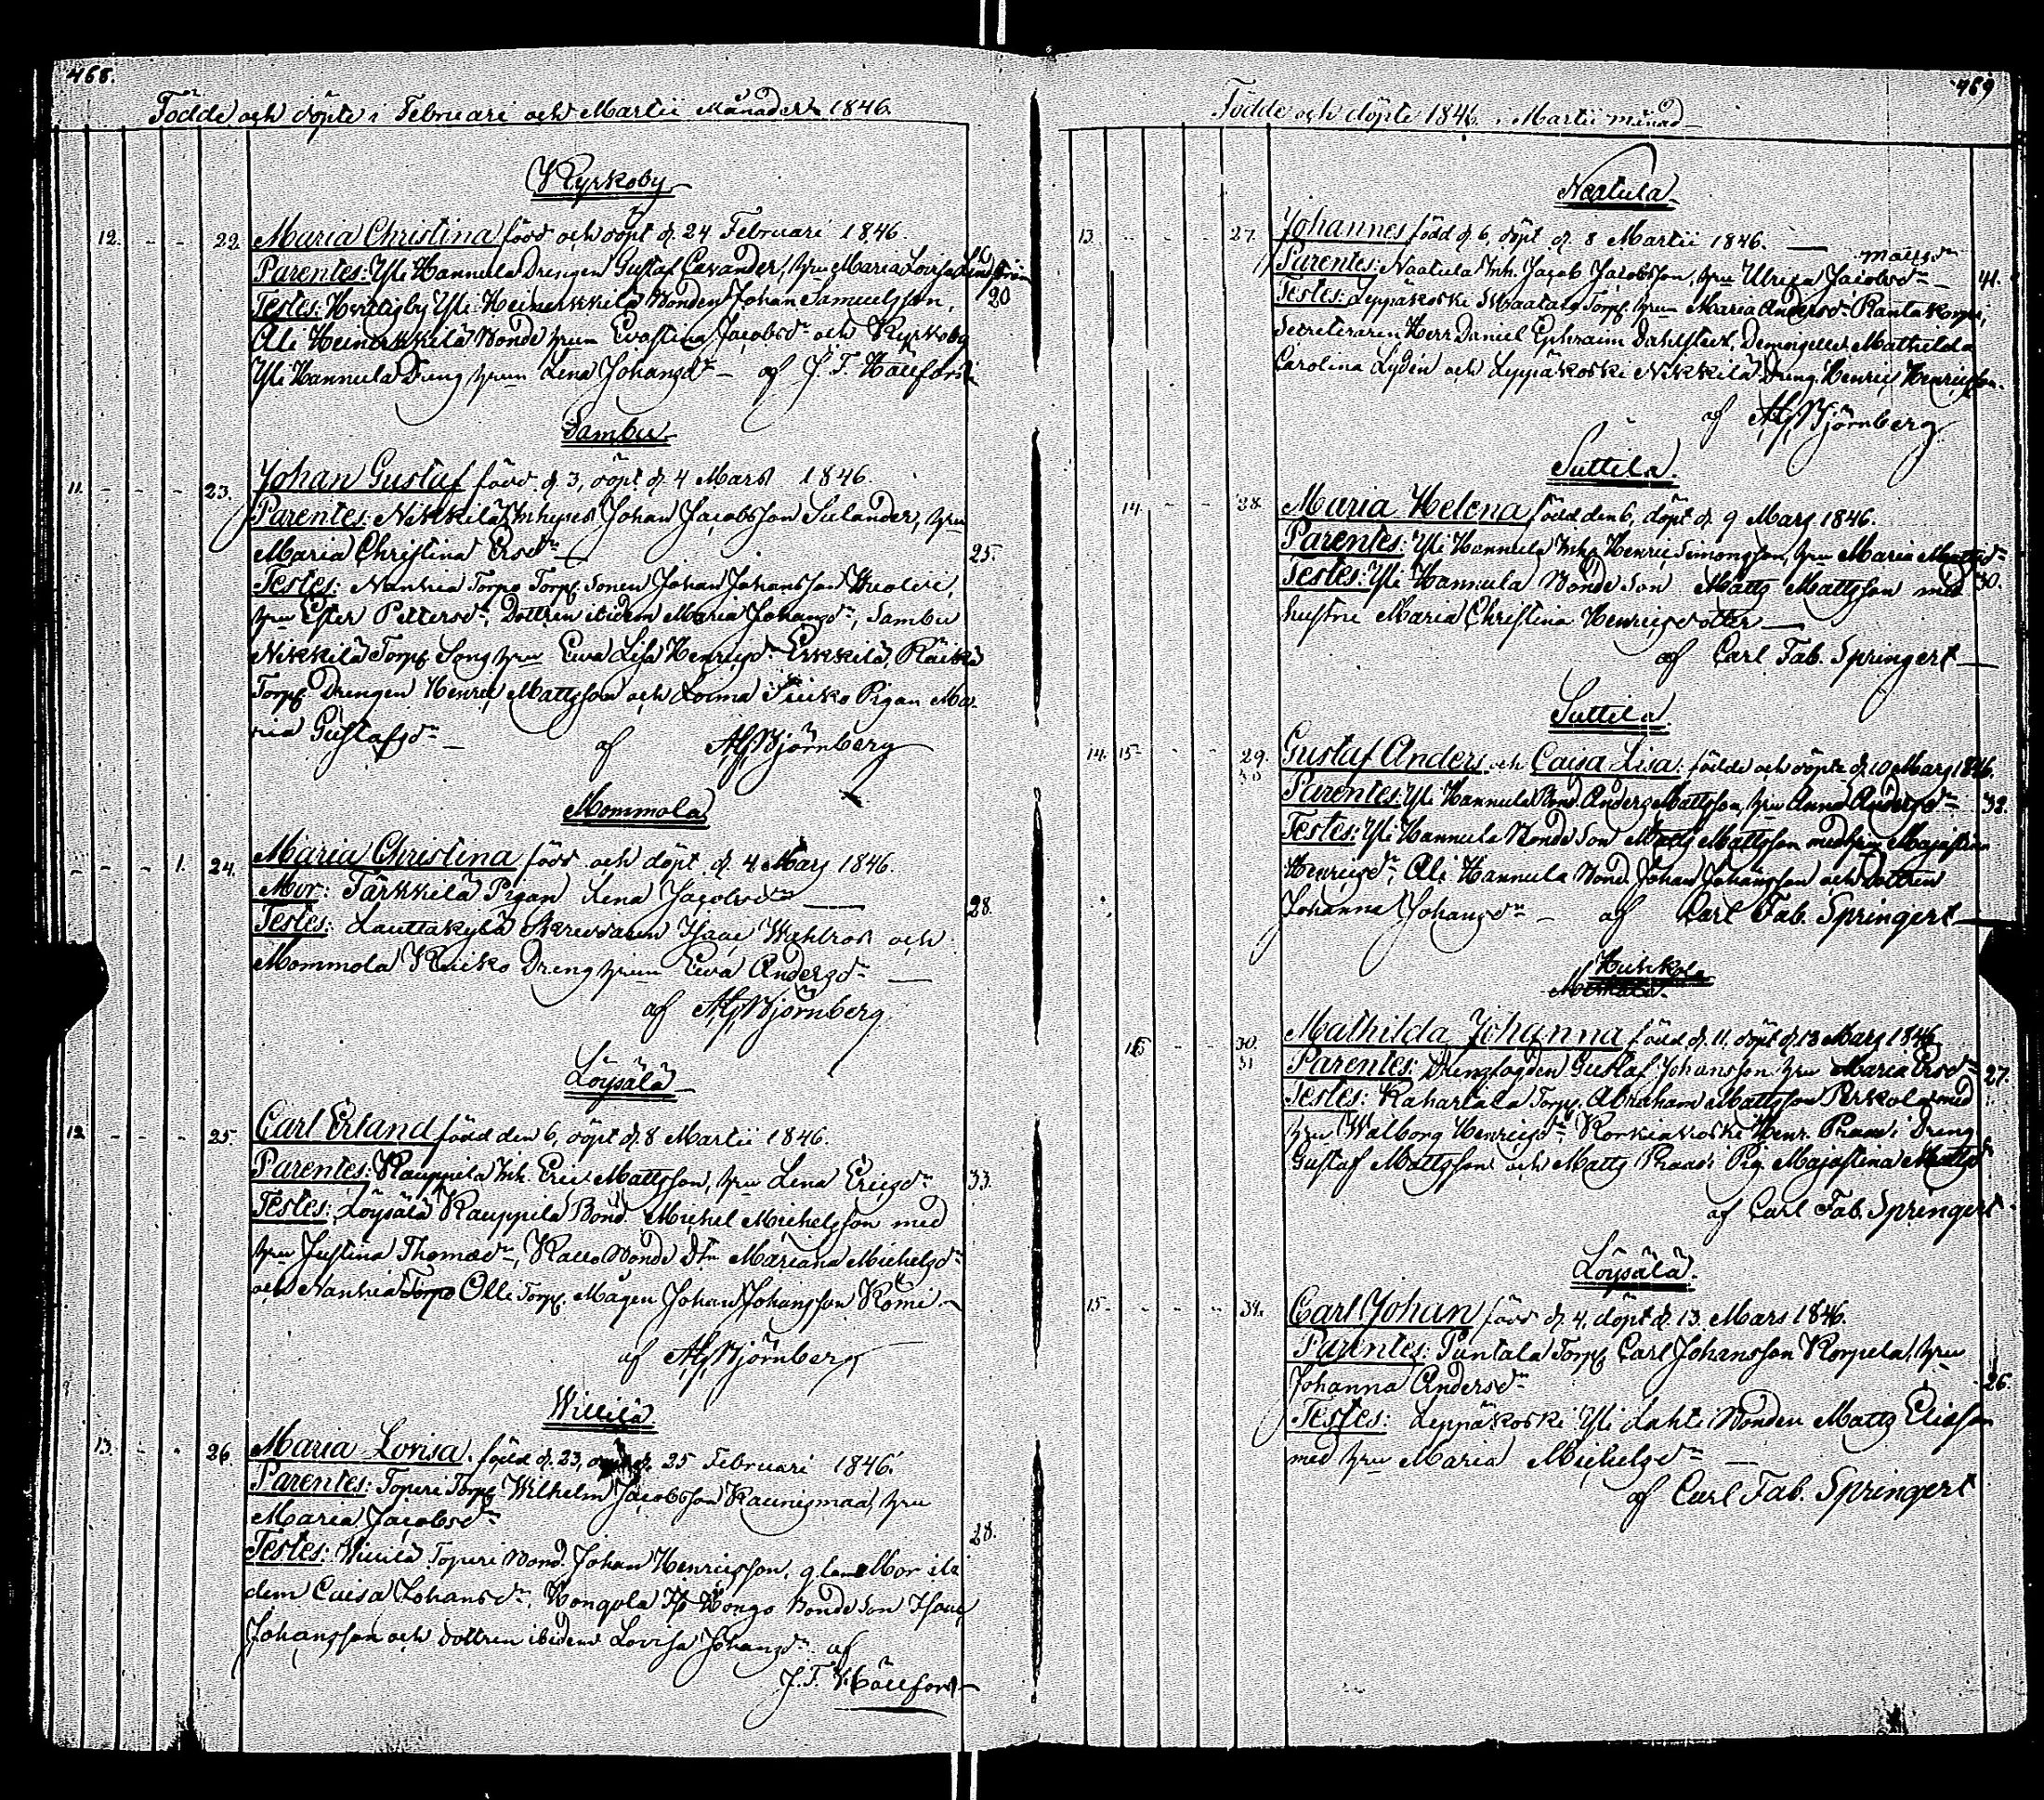 468.
Födde och döpte i Februari och Martii Månader 1846.
Kyrkoby
12. - - 22. Maria Christina född och döpt d. 24 Februari 1846.
Parentes: Yli Hannula Drengen Gustaf Cavander, hru Maria Lovisa
20
Testes: Yli Heinikkilä Bonden Johan Samuelsson,
Ali Heinikkilä Bonde hrun Evastina Jacobsdr och Kyrkoby
Yli Hannula Dreng hrun Lena Johansdr - af J. F. Hällfors
Sambu
11. - - - 23. Johan Gustaf född d. 3, döpt d. 4 Mars 1846.
Parentes: Nikkilä Inhyses Johan Jacobsson Selander, hru
Maria Christina Ersdr
25.
Testes: Nanhia Torpf. Sonen Johan Johansson
hru Ester Pettersdr, Dottren ibidem Maria Johansdr, Sambu
Nikkilä Torpf. Sons hru Ewa Lisa Henricsdr Erkkilä, Räikä
Torpf. Drengen Henric Mattsson och Loima Pigan Ma-
ria Gustafsdr - af Björnberg
Mommola
- - - 1. 24. Maria Christina född och döpt d. 4 Mars 1846.
Mor: Tärkkilä Pigan Lena Jacobsdr
28.
Testes: Lauttakylä Skreddaren Isaac Wahlros och
Mommola Dreng hrun Ewa Andersdr
af Björnberg
Löysälä
12. - - - 25. Carl Erland född den 6, döpt d. 8 Martii 1846.
Parentes: Kauppila Inh. Eric Mattsson, hru Lena Ericsdr
33.
Testes: Löysälä Kauppila Bond. Michel Michelsson med
hru Justina Thomasdr, Bonde Dtr Mariana Michelsdr
och Nanhia Olli Torpf. Mågen Johan Johansson Komi
af Björnberg
Willilä
13. - - 26. Maria Lovisa född d. 23, 25 Februari 1846.
Parentes: Toperi Torpf. Wilhelm Jacobsson Kaunismaa, hru
Maria Jacobsdr
28.
Testes: Willilä Toperi Bond. Johan Henricsson, gamla Mor ibi-
dem Caisa Johansdr, Hongola Hongo Bonde Son Isaac
Johansson och dottren ibidem Lovisa Johansdr af
J. F. Hällfors
469
Födde och döpte 1846 i Martii månad
Naatula
13. - - - 27. Johannes född d. 6, döpt d. 8 Martii 1846.
Mattsdr
Parentes: Naatula Inh. Jacob Jacobsson, hru Ulrica Jacobsdr
41.
Testes: Leppäkoski Torpf. hrun Maria Andersdr Rantakorpi,
Secreteraren Herr Daniel Ephraim Dahlstedt, Demoiselle Mathilda
Carolina Lydén och Leppäkoski Nikkilä Dreng. Henric Henricsson.
af Björnberg
Suttila
14. - - 28. Maria Helena född den 6, döpt d. 9 Mars 1846.
Parentes: Yli Hannula Inh. Henric Simonsson, hru Maria Mattsdr
30.
Testes: Yli Hannula Bonde Son Matts Mattsson med
hustru Maria Christina Henricsdotter
af Carl Fab. Springert
Suttila
14. 15 - - 29. Gustaf Anders och Caisa Lisa: födde och döpte d. 10 Mars 1846.
30
Parentes: Yli Hannula Bond. Anders Mattsson, hru Anna Andersdr
38.
Testes: Yli Hannula Bonde Son Matts Mattsson med hru Majastina
Henricsdr, Ali Hannula Bond. Johan Johansson och Dottren
Johanna Johansdr - af Carl Fab. Springert
Huhkola
15 - - 30. Mathilda Johanna född d. 11, döpt d. 13 Mars 1846
31
Parentes: Drengfogden Gustaf Johansson hru Maria Ersdr
27.
Testes: Kahartala Torpf. Abraham Mattsson Perkola med
hru Walborg Henricsdr, Korkiakoski Henr. Praasi Dreng
Gustaf Mattsson och Matts Praasi Pig. Majastina Mattsdr
af Carl Fab. Springert
Löysälä.
15. - - - 32. Carl Johan född d. 4, döpt d. 13. Mars 1846.
Parentes: Puntala Torpf. Carl Johansson Korpela, hru
Johanna Andersdr
26.
Testes: Leppäkoski Yli Lahti Bonden Matts Eliasson
med hru Maria Michelsdr
af Carl Fab. Springert